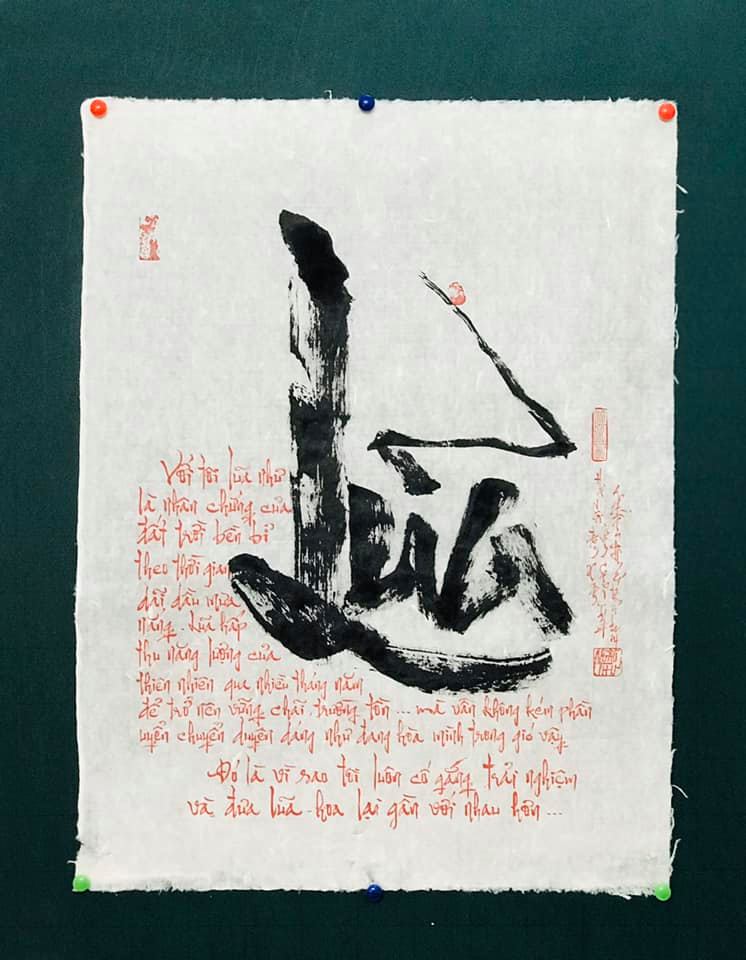 Lũa
Với tôi lũa như
là nhân chứng của
đất trời bền bỉ
theo thời gian
dãi dầu mưa
nắng. Lũa hấp
thu năng lượng của
thiên nhiên qua nhiều tháng năm
để trở nên vững chãi trường tồn ... mà vẫn không kém phần
uyển chuyển duyên dáng như đang hòa mình trong gió vậy.
Đó là vì sao tôi luôn cố gắng trải nghiệm
và đưa lũa - hoa lại gần với nhau hơn ...